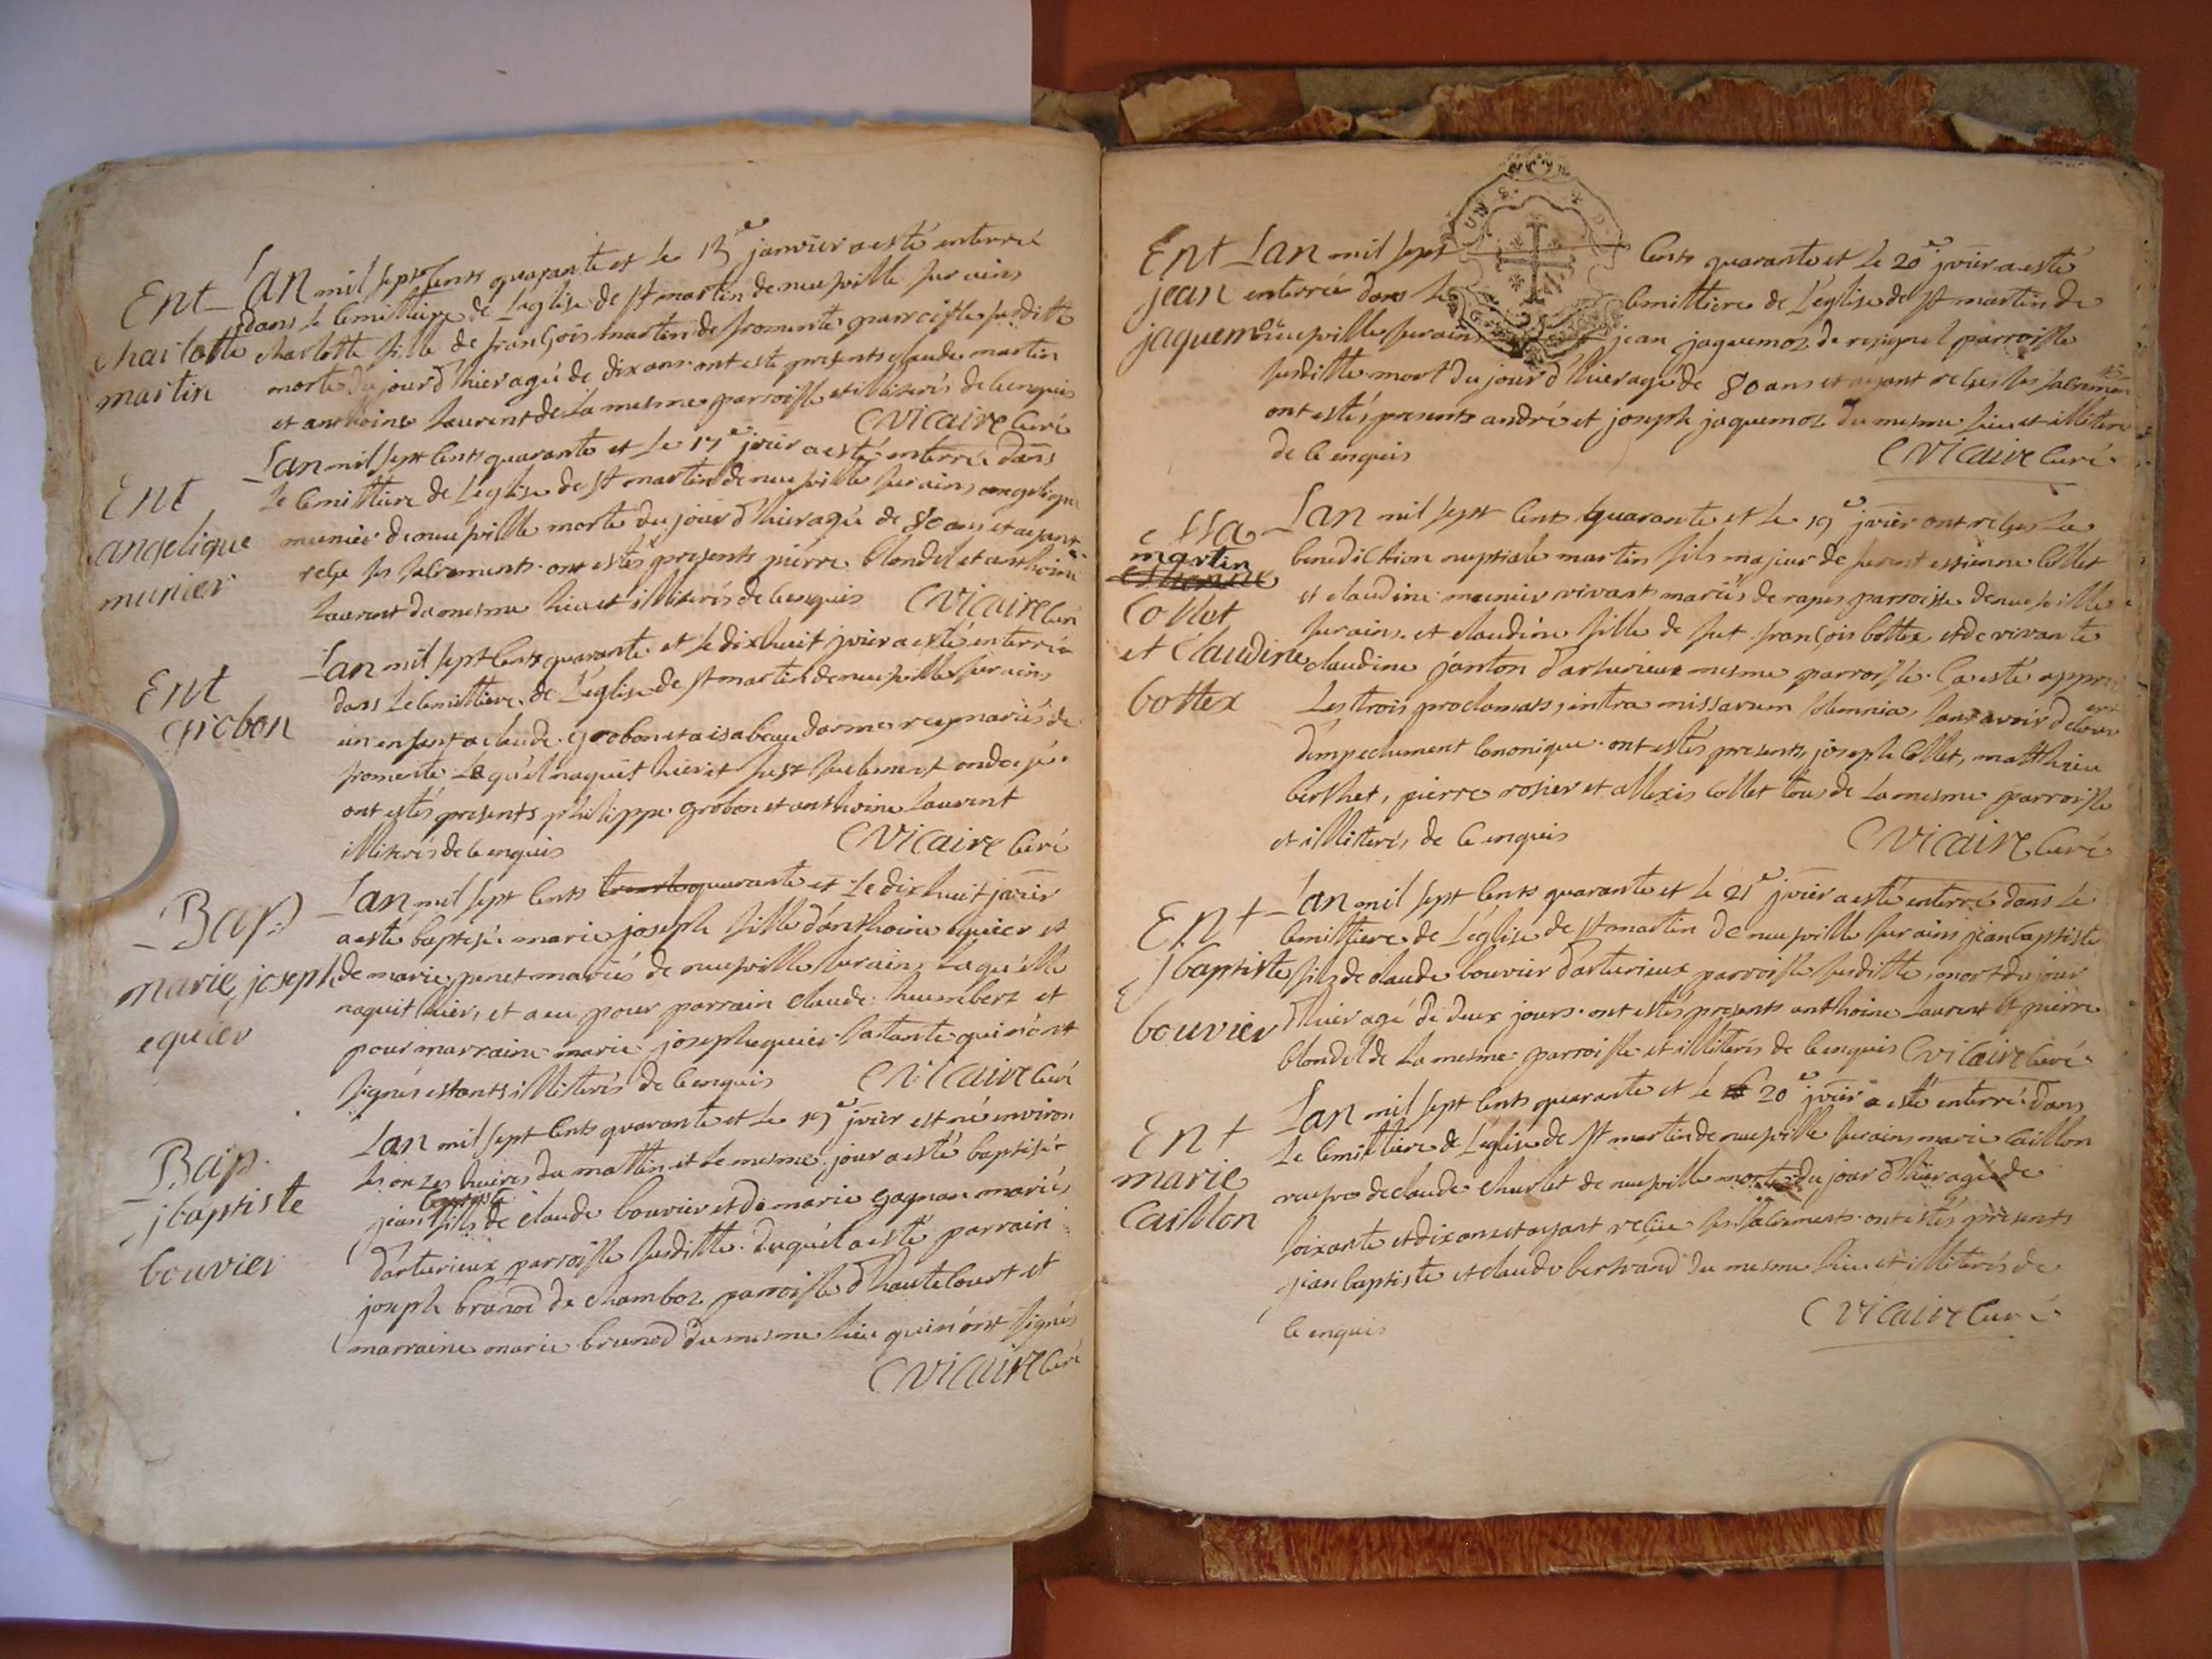 Ent
charlotte
martin
Lan mil sept cents quarante et le 13e janvier a esté enterré
dans le cemittiere de l'eglise de st martin de neufville sur ains
charlotte fille de françois martin de fromente parroisse susditte
morte du jour d'hier agé de dix ans ont esté presents claude martin
et anthoine laurent de la mesme parroisse et illiterés de ce enquis
C vicaire curé
Ent
angelique
munier
Lan mil sept cents quarante et le 17e jvier a esté enterré dans
le cemittiere de l'eglise de st martin de neufville sur ains angelique
munier de neufville morte du jour d'hier agé de 80 ans et ayant
reçu ses sacrements ont estés presents pierre blondel et anthoine
laurent du mesme lieu et illiterés de ce enquis C vicaire curé
Ent
grobon
Lan mil sept cents quarante et le dixhuit jvier a esté enterré
dans le cemittiere de l'eglise de st martin de neufville sur ains
un enfant a claude grobon et a isabeau darmerey mariés de
fromente le qu'el naquit hier et fust seulement ondoyé
ont estés presents philippe grobon et anthoine laurent
illiterés de ce enquis C vicaire curé
Bap
marie joseph
equier
Lan mil sept cents quarante et le dix huit janvier
a esté baptisé marie joseph fille d'anthoine equier et
de marie penet mariés de neufville sur ains la qu'elle
naquit hier, et a eu pour parrain claude humbert et
pour marraine marie joseph equier sa tante qui n'ont
signés estants illiterés de ce enquis C vicaire curé
Bap
jbaptiste
bouvier
Lan mil sept cents quarante et le 19e jvier est né environ
les onzes heures du mattin et le mesme jour a esté baptisé
baptiste
jean fils de claude bouvier et de marie gagnan mariés
d'arturieux parroisse susditte duqu'el a esté parrain
joseph brunod de chamboz parroisse d'hautecourt et
marraine marie brunod du mesme lieu qui n'ont signés
C vicaire curé
Ent
jean
jaquemoz
Lan mil sept cents quarante et le 20e jvier a esté
enterré dans le cemittiere de l'eglise de st martin de
neufville sur ains jean jaquemoz de resignel parroisse
susditte mort du jour d'hier agé de 80 ans et ayant reçu ses sacrements
ont estés presents andré et joseph jaquemoz du mesme lieu et illiterés
de ce enquis C vicaire curé
Ma
martin
estienne
collet
et claudine
bottex
Lan mil sept cents quarante et le 19e jvier ont reçu la
benediction nuptiale martin fils majeur de furent estienne collet
et claudine meunier vivants mariés de rapes parroisse de neufville
sur ains et claudine fille de fut françois bottex et de vivante
claudine janton d'arturieux mesme parroisse Ça esté apprès
les trois proclamats, intra missarum solemnia, sans avoir decouvert
d'impechement canonique ont estés presents joseph collet, matthieu
berthet, pierre rosier et allexis collet tous de la mesme parroisse
et illiterés de ce enquis C vicaire curé
Ent
jbaptiste
bouvier
Lan mil sept cents quarante et le 21e jvier a esté enterré dans le
cemittiere de l'eglise de st martin de neufville sur ains jean baptiste
fils de claude bouvier d'arturieux parroisse susditte, mort du jour
d'hier agé de deux jours ont estés presents anthoine laurent et pierre
blondel de la mesme parroisse et illiterés de ce enquis C vicaire curé
Ent
marie
caillon
Lan mil sept cents quarante et le 20e jvier a esté enterré dans
le cemittiere de l'eglise de st martin de neufville sur ains marie caillon
veufve de claude charlet de neufville morte du jour d'hier agé de
soixante et dix ans et ayant reçue ses sacrements ont estés presents
jean baptiste et claude bertrand du mesme lieu et illiterés de
ce enquis
C vicaire curé